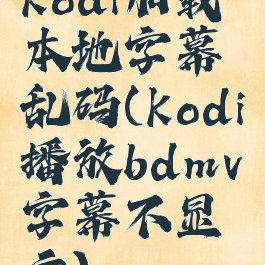 kodi加载
本地字幕
乱码(kodi
播放bdmv
字幕不显
示)